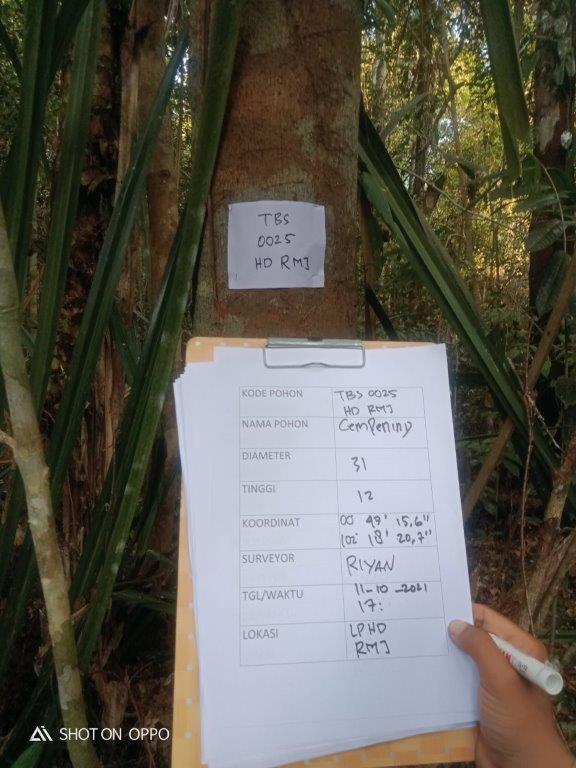 TBS
0025
HD RMJ
KODE POHON TBS 0025
HD RMJ
NAMA POHON CemPeniny
DIAMETER 31
TINGGI 12
KOORDINAT 00° 47' 15,6"
102° 18' 20,7"
SURVEYOR RIYAN
TGL/WAKTU 11-10-2021
17:
LOKASI LPHD
RMJ
SHOT ON OPPO